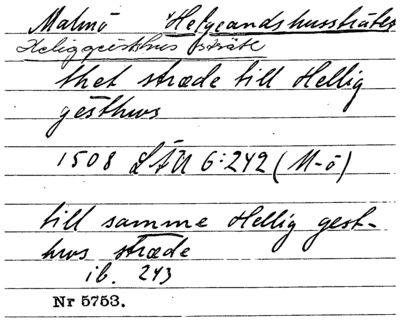 Malmö Helgeandshusstätet
Heliggeisthus stræte
thet stræde till Hellig
gesthws
1508 LÄU 6:242 (M-ö)
till samme Hellig gest-
hws stræde
ib. 243
Nr 5753.